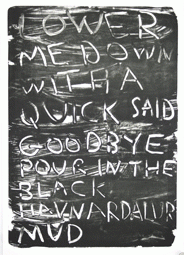 LOWER
ME DOWN
WITH A
QUICK SAID
GOODBYE
POUR IN THE
BLACK
HAVNARDALUR
MUD